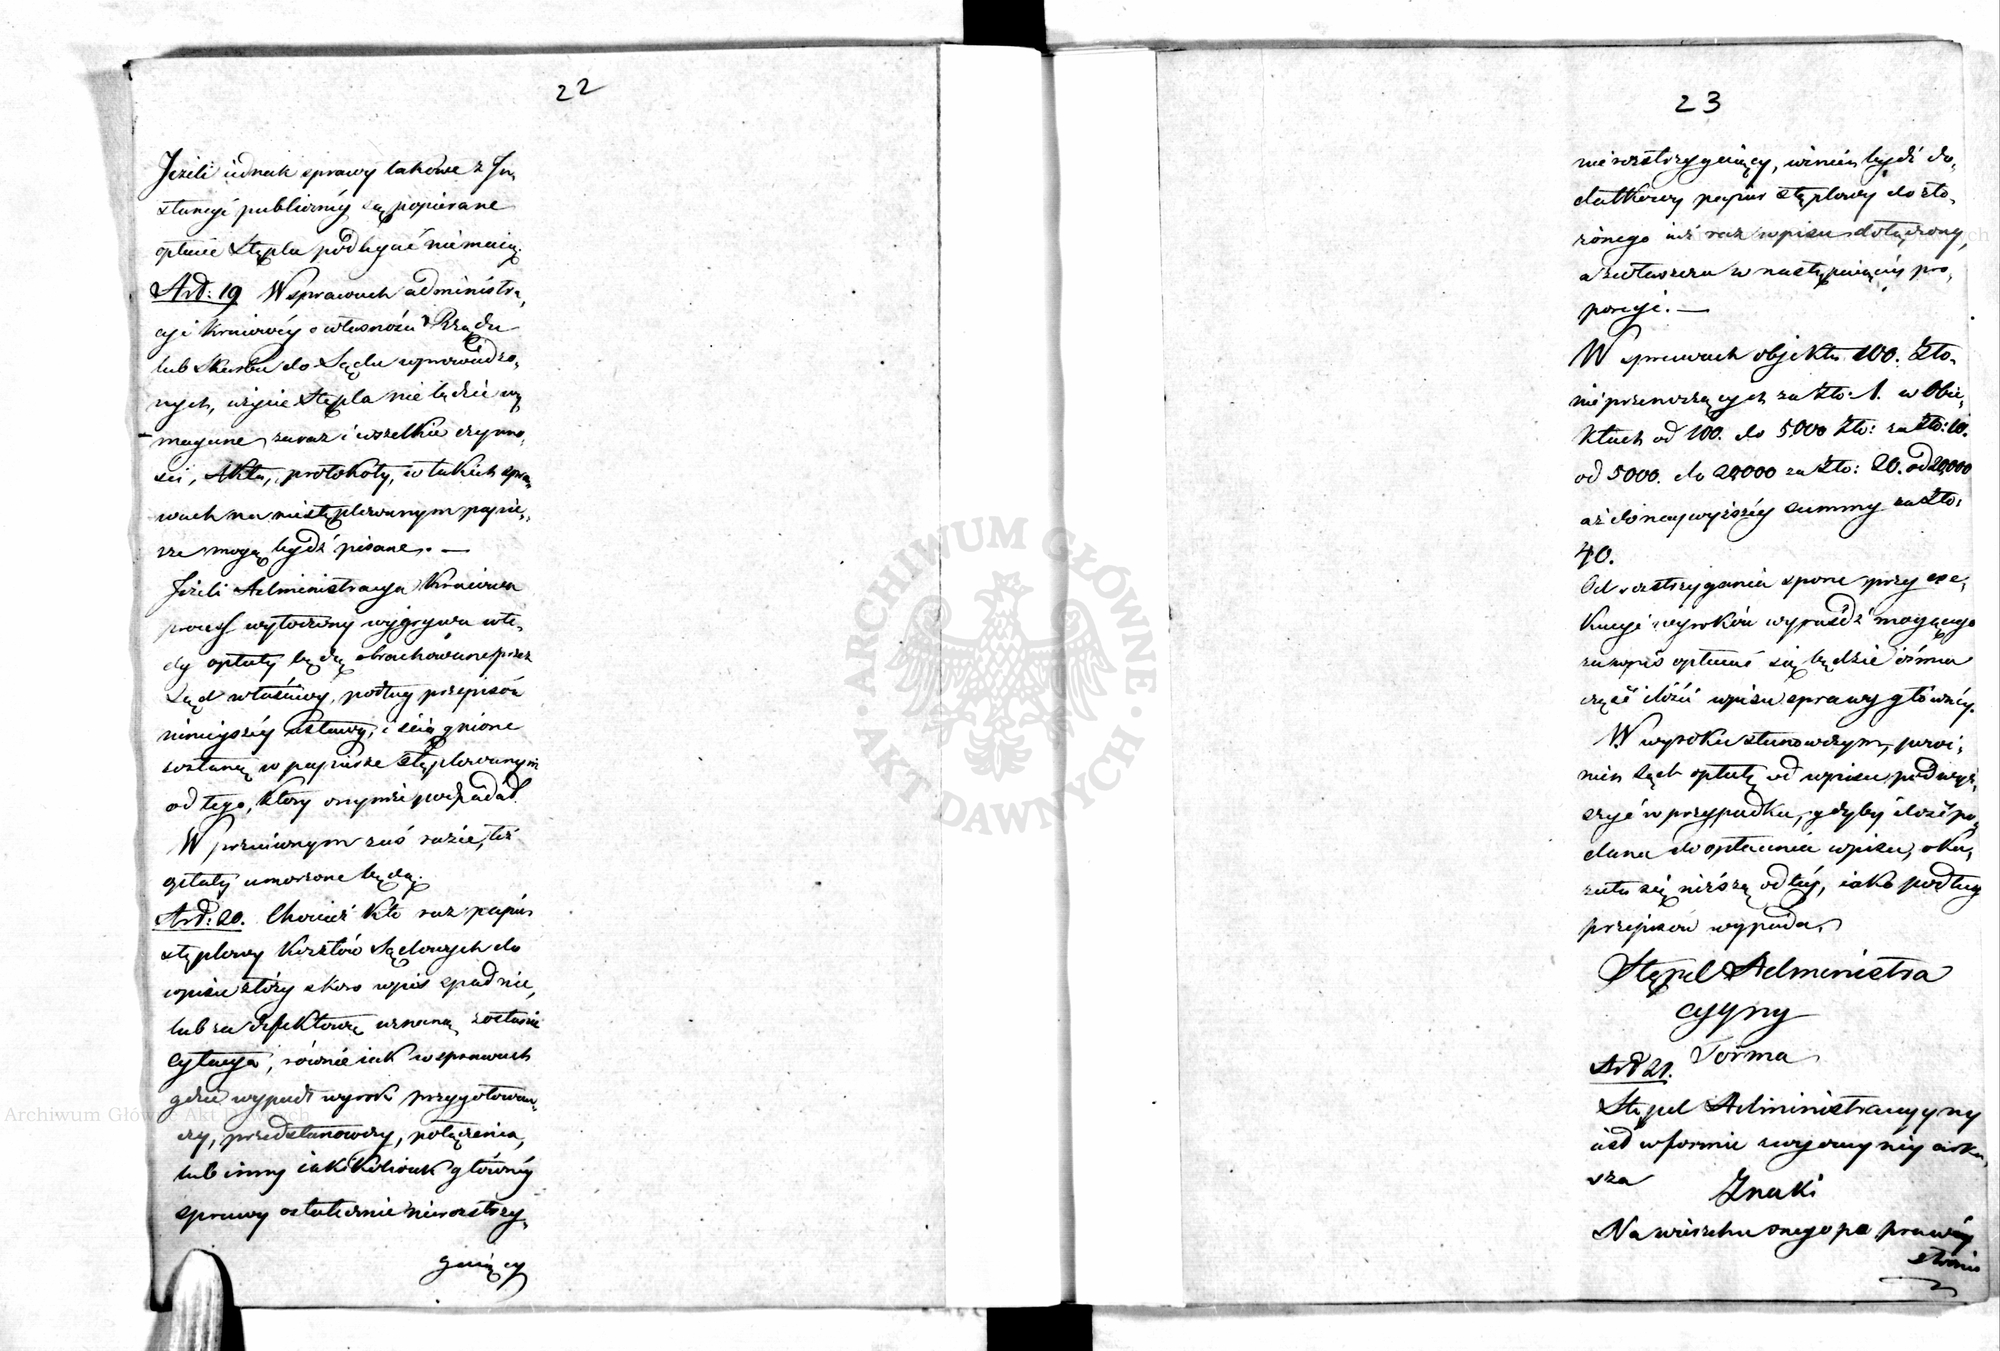 22
Jeżeli iednak sprawy takowe z In-
stancyi publiczney są popierane
opłacie Stępla podlegać nie maią.
Art: 19 W sprawach administra-
cyi kraiowéy o własności Rządu
lub Skarbu do Sądu wprowadzo-
nych, użycie Stępla nie będzie wy-
magane, zaraz i wszelkie czynno-
ści, Akta, protokoły, w takich spra-
wach na niestęplowanym papie-
rze mogą bydź pisane. —
Jeżeli Administracya Kraiowa
process wytoczony wygrywa wte-
dy opłaty będą obrachowane przez
Sąd właściwy, podług przepisów
ninieyszéy ustawy, i ściągnione
zostaną w papierze stęplowanym
od tego, który onymże podpadał
W przeciwnym zaś razie, też
opłaty umorzone będą.
Art: 20. Chociaż kto raz papier
stęplowy kosztów Sądowych do
wpisu złoży skoro wpis spadnie,
lub za defektową uznaną zostanie
Cytacya, równie iak w sprawach
gdzie wypadł wyrok przygotowaw-
czy, przedstanowczy, połączenia,
lub inny iakikolwiek główney
sprawy ostatecznie nierozstrzy-
gaiący
23
nierozstrzygaiący, winien bydź do-
datkowy papier stęplowy do zło-
żonego iuż raz wpisu dołączony,
a zwłaszcza w następuiącéy pro-
porcyi. —
W sprawach objektu 100. Zło-
nie przenoszących za Zło: 1. w Obie-
ktach od 100. do 5000 Zło: za Zło: 10.
od 5000. do 20000 za Zło: 20. od 20,000
aż do naywyższéy summy za Zło:
40.
Od rozstrzygania sporu przy exe-
kucyi wyroków wypaśdź mogącego
zawpis opłacać się będzie ósma
część ilości wpisu sprawy główney.
W wyroku stanowczym, powi-
nien Sąd opłatę od wpisu podwyż-
szyć w przypadku, gdyby ilość po-
dana do opłacenia wpisu, oka-
zała się niższą od téy, iaka podług
przepisów wypada,
Stępel Administra
cyyny
Forma
Art 21.
Stępel Administracyyny
iest w formie zwyczayney arku-
sza
Znaki
Na wierzchu onego po prawéy
stronie
ARCHIWUM GŁÓWNE · AKT DAWNYCH ·
Archiwum Główne Akt Dawnych